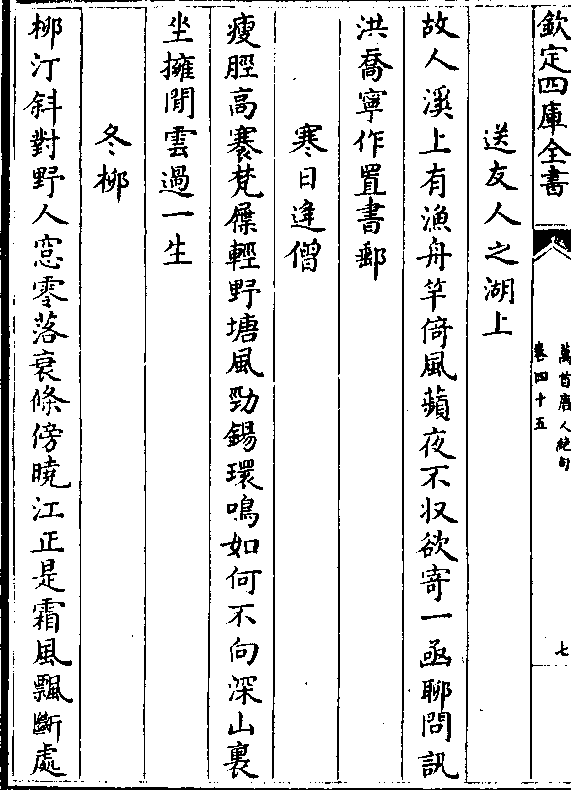 欽定四庫全書
萬首唐人絶句
卷四十五
七
送友人之湖上
故人溪上有漁舟竿倚風蘋夜不収欲寄一函聊問訊
洪喬寧作置書郵
寒日逢僧
瘦脛高褰梵屧輕野塘風勁錫環鳴如何不向深山裏
坐擁閒雲過一生
冬柳
柳汀斜對野人窓零落衰條傍曉江正是霜風飄斷處